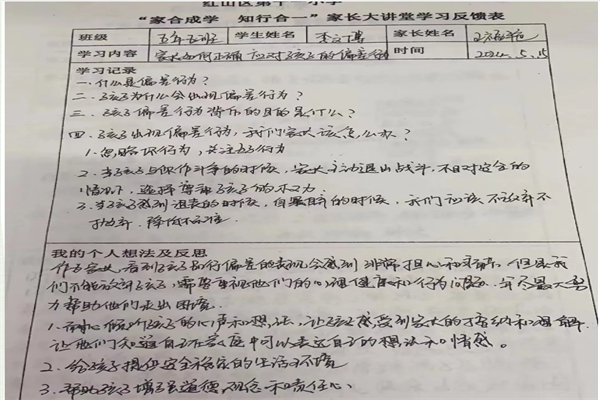 红山区第十一小学
“家合成学 知行合一”家长大讲堂学习反馈表
班级 五年五班 学生姓名 家长姓名
学习内容 家长如何正确应对孩子的偏差行为 时间 2024.5.15
学习记录
一.什么是偏差行为?
二.孩子为什么会出现偏差行为?
三.孩子偏差行为背后的目的是什么?
四.孩子出现偏差行为,我们家长该怎么办?
1.忽略你行为,关注五行为
2.当孩子与你作斗争的时候,家长主动退出战斗,不相对安全的
情况下,选择尊重孩子的权力.
3.当孩子感到沮丧的时候,自暴自弃的时候,我们应该不放弃不
抛弃.降低标准.
我的个人想法及反思
作为家长,看到孩子出行偏差的表现会感到非常担心和
们不能放弃孩子.需要重视他们的心理健康和行为问题.并尽最大努
力帮助他们走出困境.
1.耐心倾听孩子的心声和想法,让孩子感受到家长的接纳和理解
让他们知道自己在家庭中可以表达自己的想法和情感。
2.给孩子提供安全稳定的生活环境
3.帮助孩子增强道德观念和责任心.